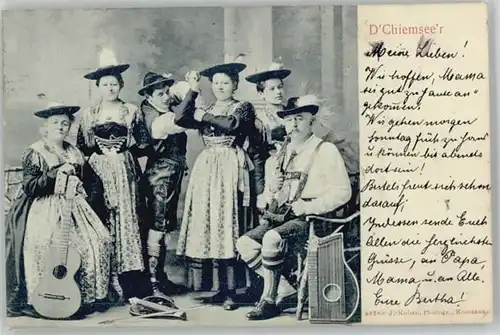 D'Chiemsee'r
Meine Lieben!
Wir hoffen, Mama
sei gut zu Hause an-
gekommen!
Wir gehen morgen
Sonntag früh zu Haus
u können bis abends
dort sein!
freut sich schon
darauf,
Indessen sende Euch
Allen die herzlichste
Grüsse, an Papa,
Mama u. an Alle.
Eure Bertha!